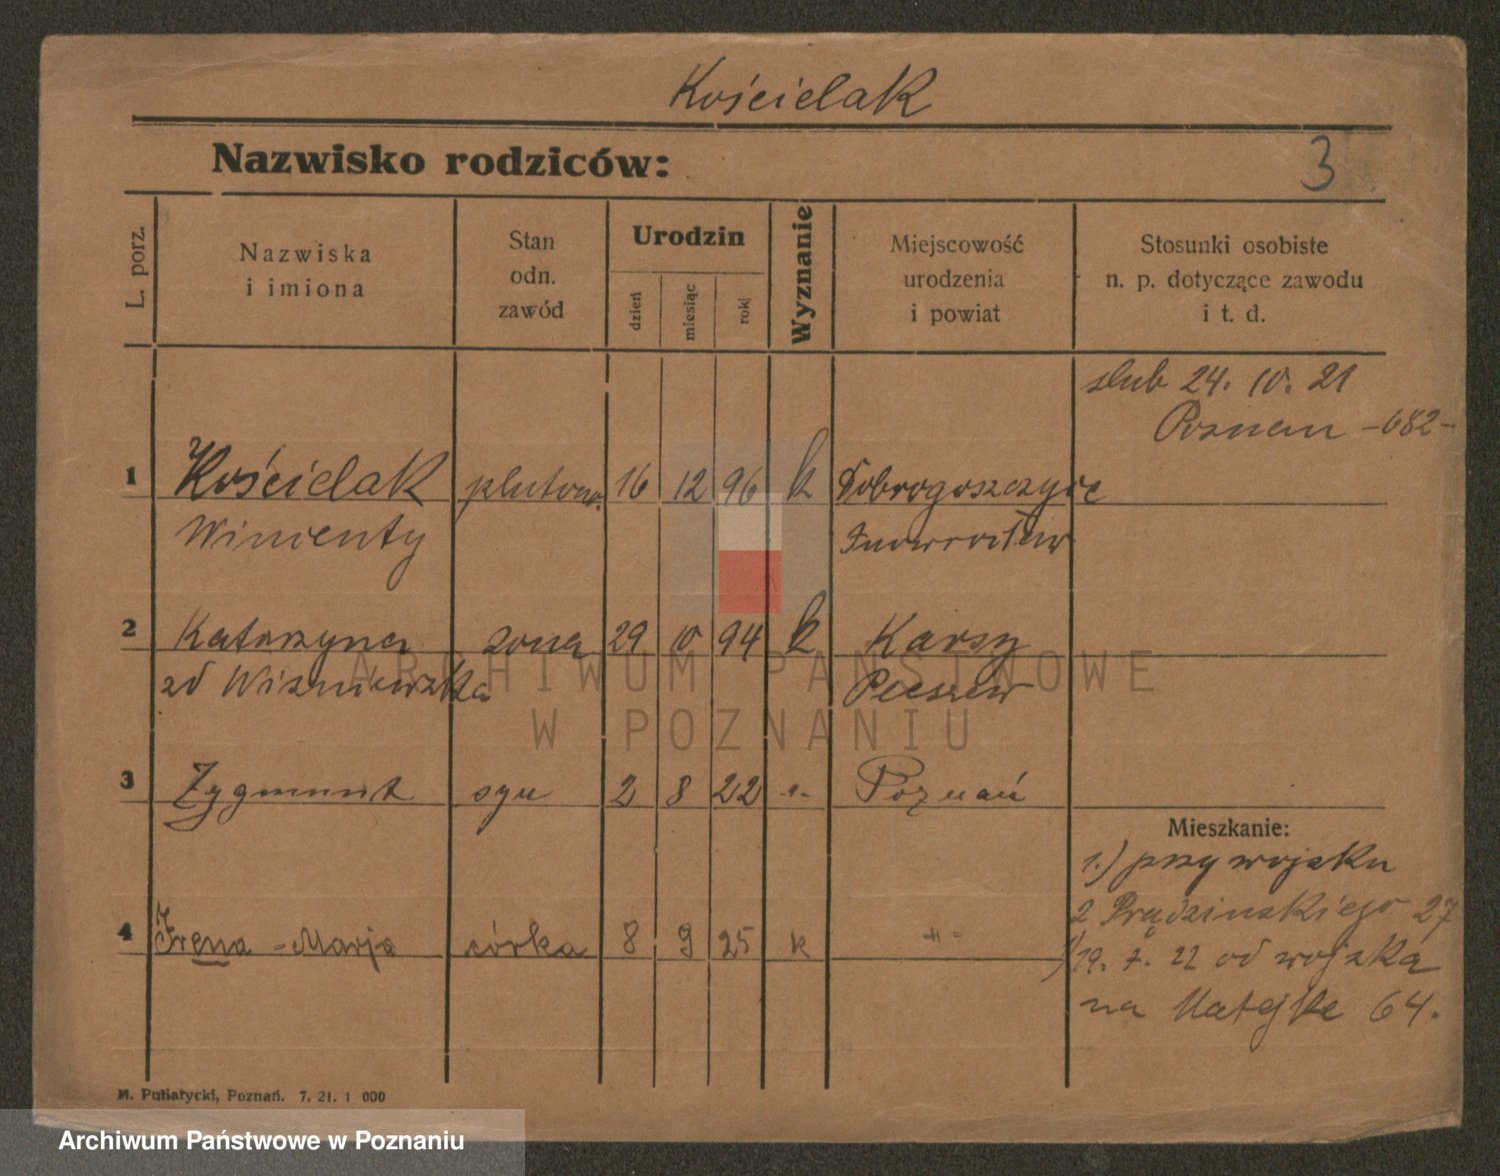 Kościelak
Nazwisko rodziców:
3
L. porz.
Nazwiska
i imiona
Stan
odn.
zawód
Urodzin
dzień
miesiąc
rok
Wyznanie
Miejscowość
urodzenia
i powiat
Stosunki osobiste
n. p. dotyczące zawodu
i t. d.
slub 24. 10. 21
Poznan -682-
1 Kościelak plutono. 16 12 96 k Dobrogoszczyce
Wincenty Inowrocław
2 Katarzyna zona 29 10 94 k Karsy
zd Wiszniewska Pleszew
3 Zygmunt syn 2 8 22 Poznań
Mieszkanie:
1.) przy wojsku
2 Prądzinskiego 27
4 Irena - Marja córka 8 9 25 k -"-
19. 7. 22 od wojska
na Matejke 64.
M. Putiatycki, Poznań. 7. 21. 1 000
ARCHIWUM PAŃSTWOWE
W POZNANIU
Archiwum Państwowe w Poznaniu